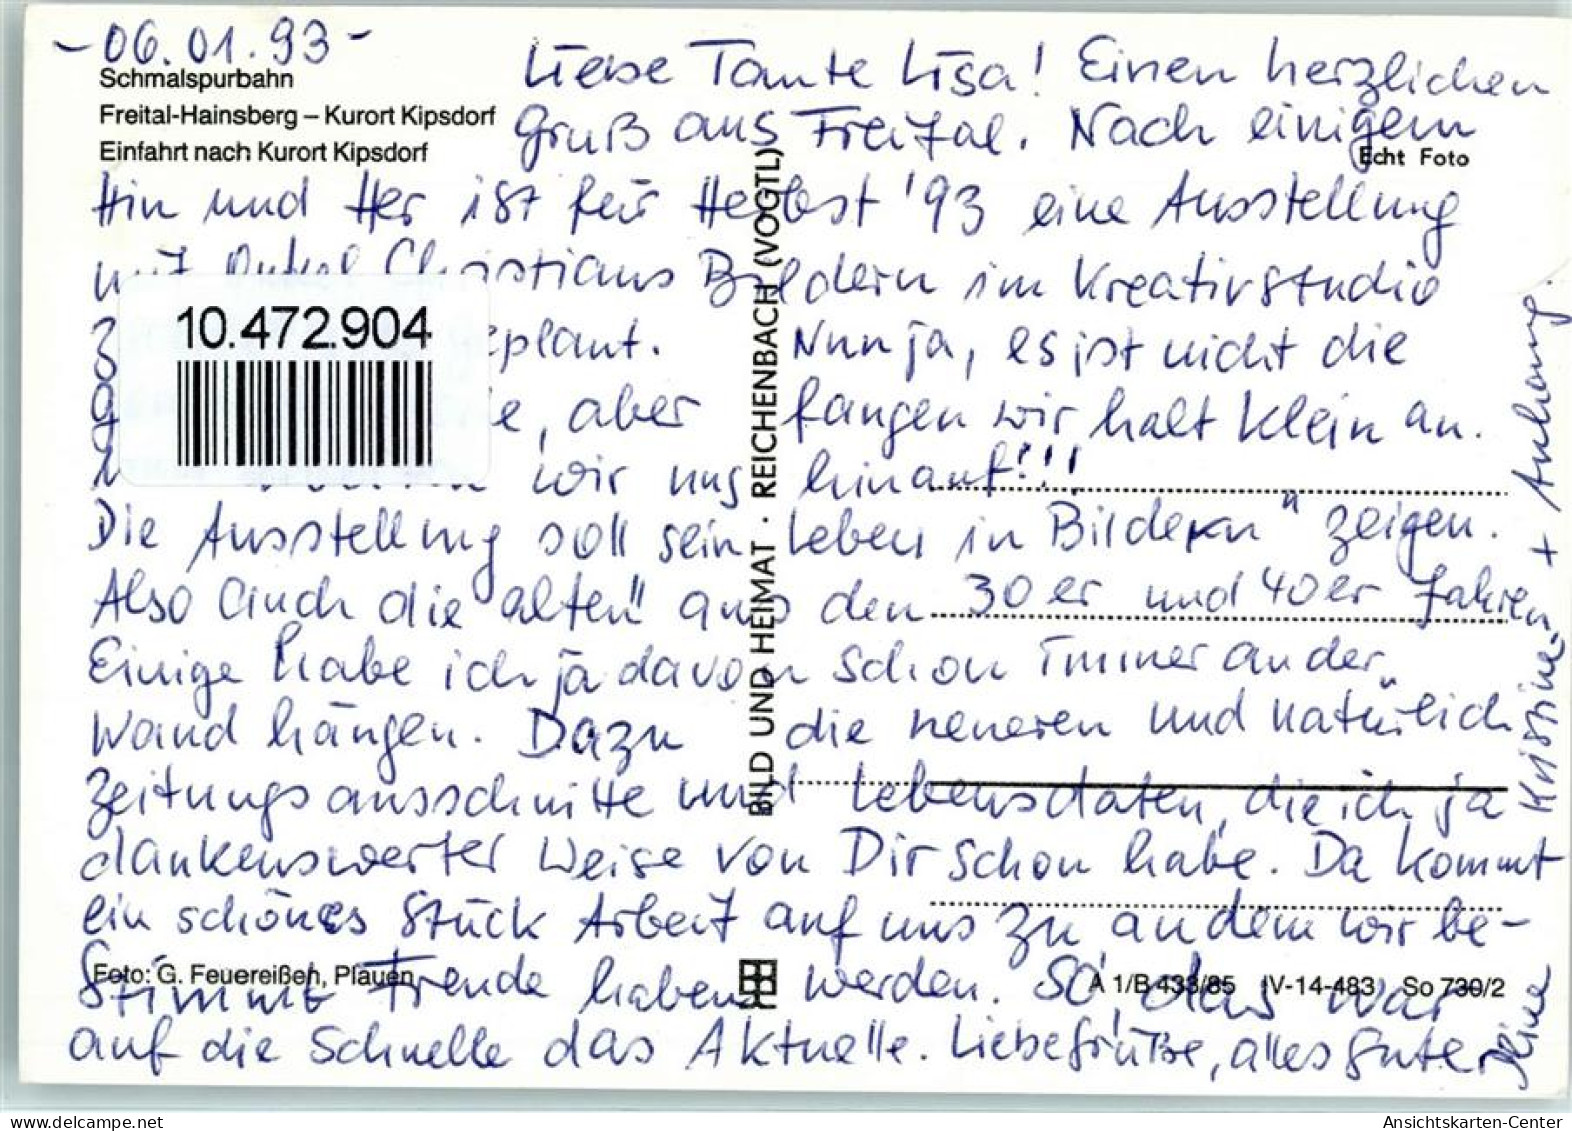 -06.01.93-
Schmalspurbahn
Freital-Hainsberg – Kurort Kipsdorf
Einfahrt nach Kurort Kipsdorf
Echt Foto
Liebe Tante Lisa! Einen herzlichen
Gruß aus Freital. Nach einigem
Hin und Her ist für Herbst '93 eine Ausstellung
mit Onkel Christians Bildern im Kreativstudio
geplant. Nun ja, es ist nicht die
aber fangen wir halt klein an.
wir uns hinauf!!!
Die Ausstellung soll sein Leben in Bildern" zeigen.
Also auch die "alten" aus den 30er und 40er Jahren
Einige habe ich ja davon schon immer an der
Wand hängen. Dazu die neueren und natürlich
Zeitungsausschnitte und Lebensdaten, die ich ja
dankenswerter Weise von Dir schon habe. Da kommt
ein schönes Stück Arbeit auf uns zu, an dem wir be-
stimmt Freude haben werden. So, das war
auf die Schnelle das Aktuelle. Liebe Grüße, alles Gute
Kristine + Anhang.
10.472.904
BILD UND HEIMAT · REICHENBACH (VOGTL)
Foto: G. Feuereißen, Plauen
A 1/B 433/85 IV-14-483 So 730/2
www.delcampe.net
Ansichtskarten-Center